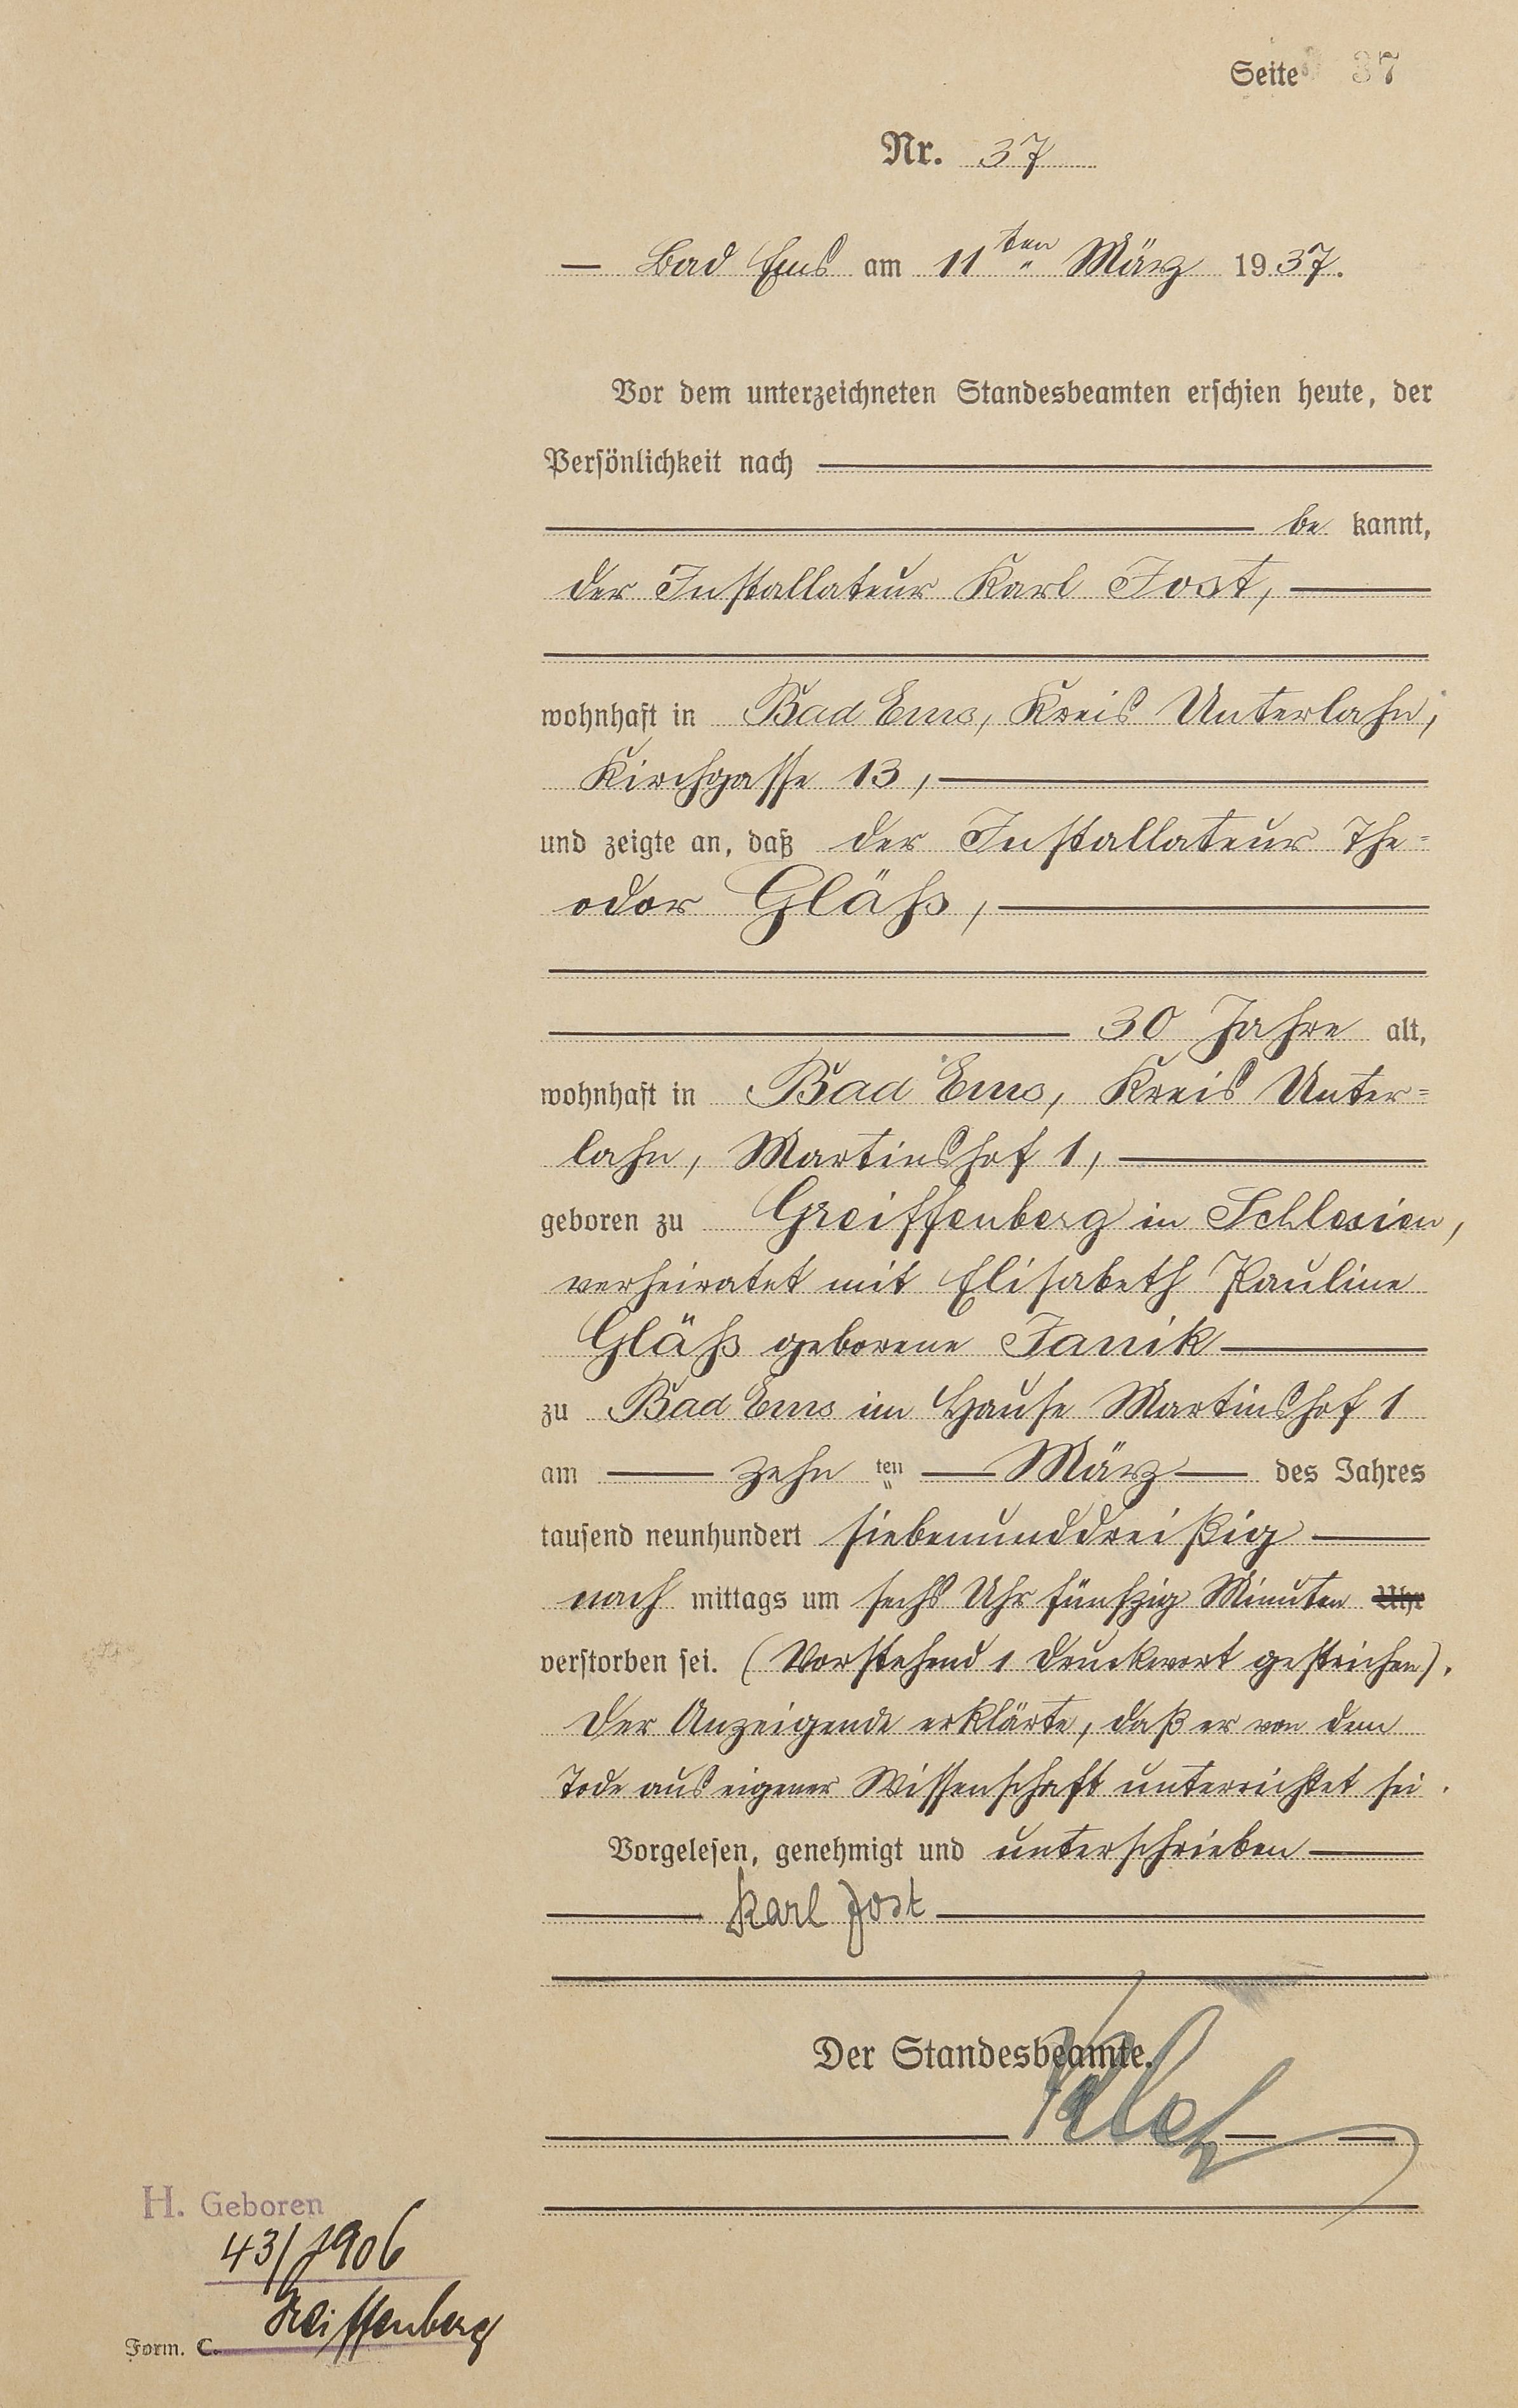 Seite 37
Nr. 37
Bad Ems am 11ten März 1937.
Vor dem unterzeichneten Standesbeamten erschien heute, der
Persönlichkeit nach
be kannt,
der Installateur Karl Jost,
wohnhaft in Bad Ems, Kreis Unterlahn,
Kirchgasse 13,
und zeigte an, daß der Installateur The=
odor Gläß,
30 Jahre alt,
wohnhaft in Bad Ems, Kreis Unter=
lahn, Martinshof 1,
geboren zu Greiffenberg in Schlesien,
verheiratet mit Elisabeth Pauline
Gläß geborene Janik
zu Bad Ems im Hause Martinshof 1
am zehn ten März des Jahres
tausend neunhundert siebenunddreißig
nach mittags um sechs Uhr fünfzig Minuten Uhr
verstorben sei. (Vorstehend 1 Druckwort gestrichen).
Der Anzeigende erklärte, daß er von dem
Tode aus eigener Wissenschaft unterrichtet sei.
Vorgelesen, genehmigt und unterschrieben
Karl Jost
Der Standesbeamte.
H. Geboren
43/1906
Greiffenberg
Form. C.